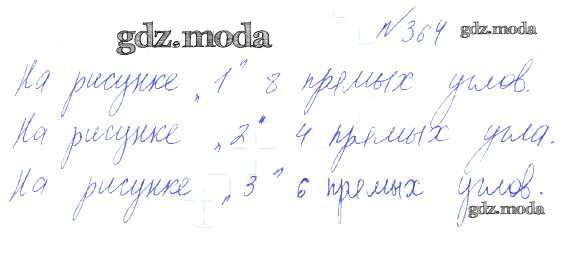 №364 gdz.moda
gdz.moda
На рисунке „1“ 8 прямых углов.
На рисунке „2“ 4 прямых угла.
На рисунке „3“ 6 прямых углов.
gdz.moda